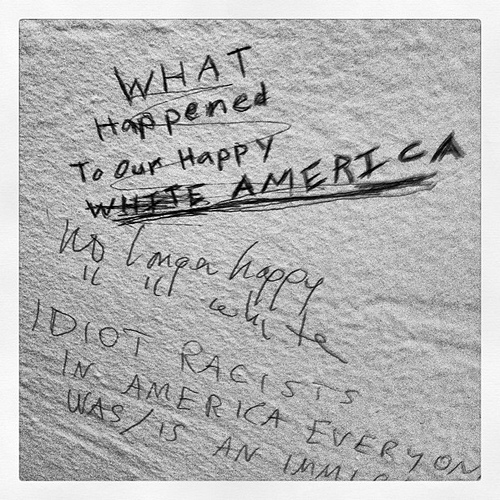 WHAT
Happened
To Our Happy
WHITE AMERICA
No longer happy
" " white
IDIOT RACISTS
IN AMERICA EVERYON
WAS/IS AN IMMI